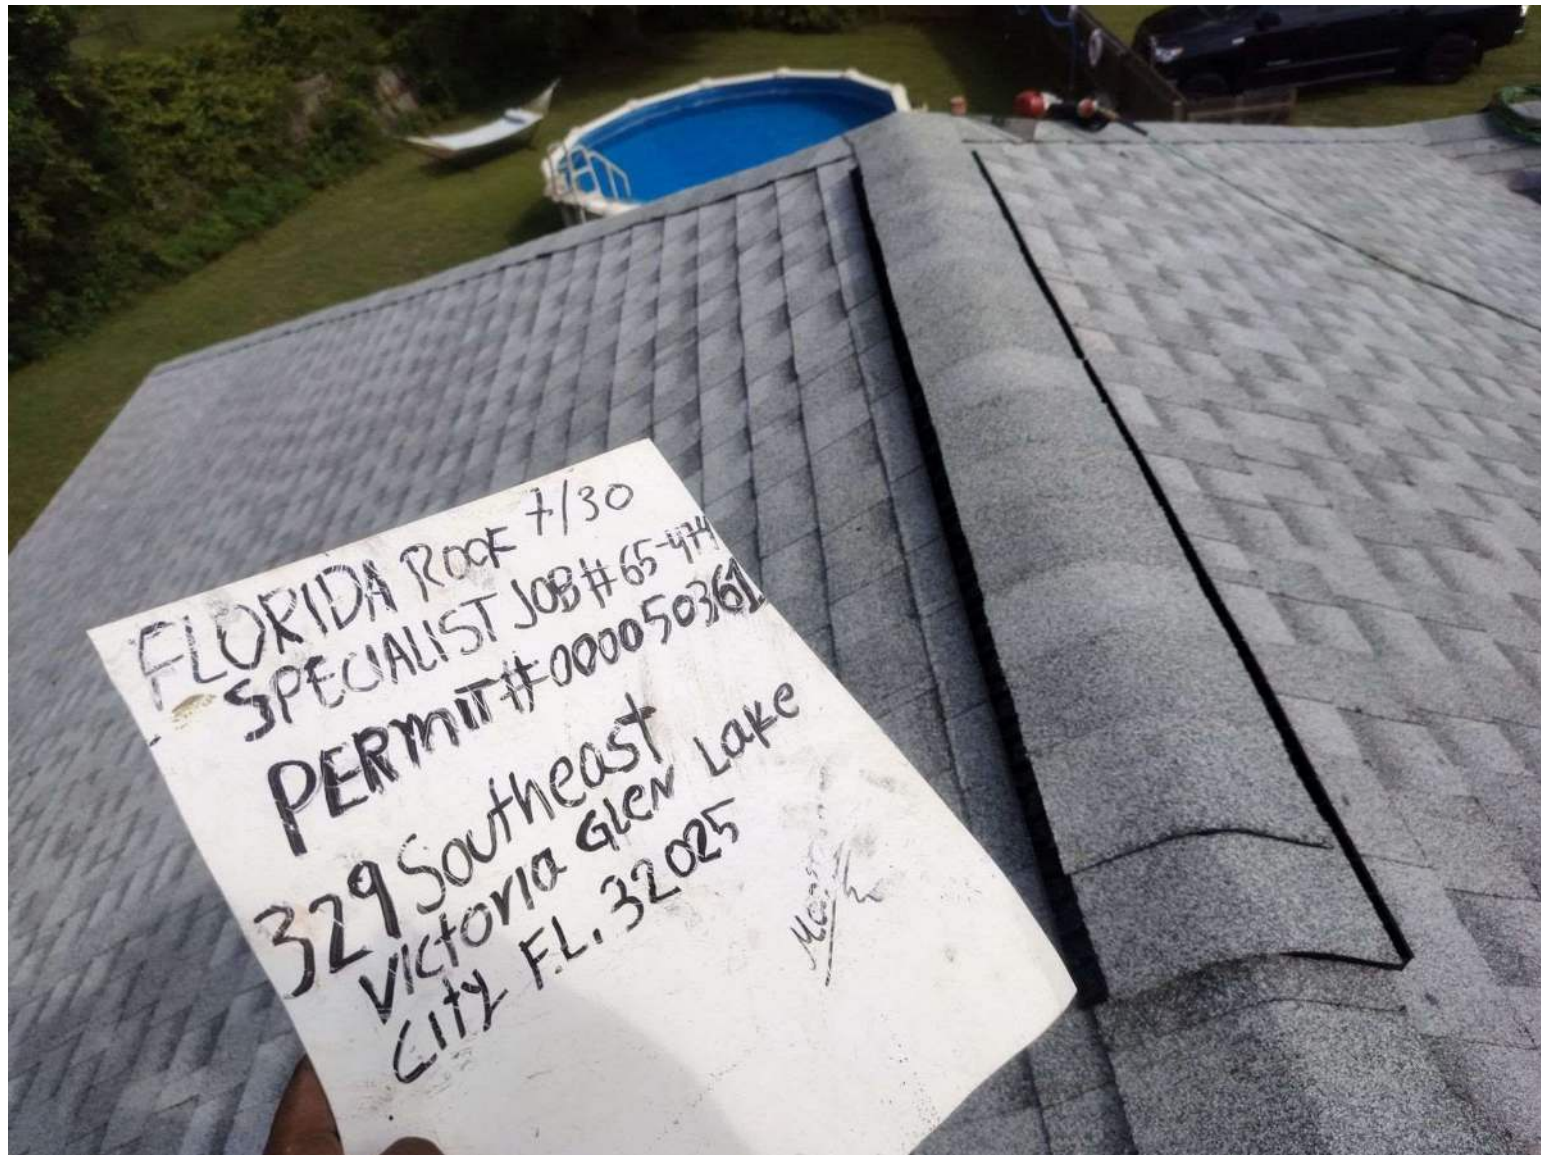 FLORIDA ROOF 7/30
SPECIALIST JOB# 65-474
PERMIT# 000050361
329 Southeast
Victoria GLEN Lake
City FL. 32025